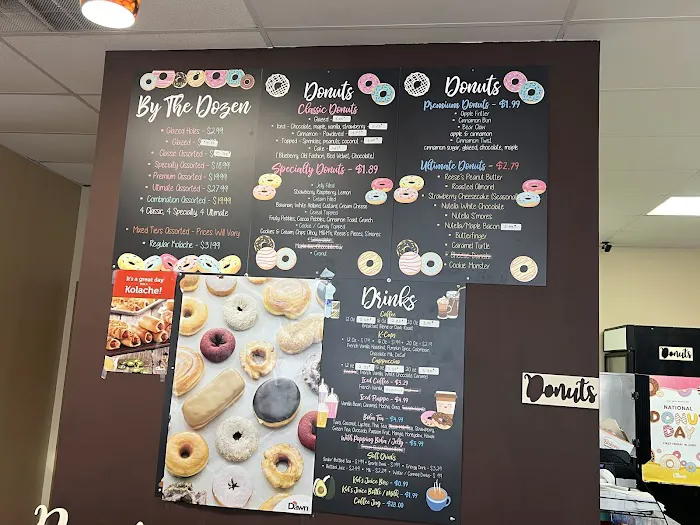 By The Dozen
• Glazed Holes - $2.99
• Glazed - $
• Classic Assorted -
• Specialty Assorted - $18.99
• Premium Assorted - $19.99
• Ultimate Assorted - $27.99
• Combination Assorted - $19.99
4 Classic, 4 Specialty, 4 Ultimate
Mixed Tiers Assorted - Prices Will Vary
• Regular Kolache - $31.99
Donuts
Classic Donuts
• Glazed -
• Iced - Chocolate, maple, vanilla, strawberry -
• Cinnamon - Powdered -
• Topped - Sprinkles, peanuts, coconut -
• Cake -
( Blueberry, Old Fashion, Red Velvet, Chocolate)
Specialty Donuts - $1.89
• Jelly Filled
Strawberry, Raspberry, Lemon
• Cream Filled
Bavarian, White Whipped, Custard, Cream Cheese
• Cereal Topped
Fruity Pebbles, Cocoa Pebbles, Cinnamon Toast Crunch
• Cookie / Candy Topped
Cookies & Cream, Chips Ahoy, M&M's, Reese's Pieces, S'mores
Maple Bar, Chocolate Bar
• Cronut
Donuts
Premium Donuts - $1.99
• Apple Fritter
• Cinnamon Bun
• Bear Claw
apple & cinnamon
• Cinnamon Twist
cinnamon sugar, glazed, chocolate, maple
Ultimate Donuts - $2.79
• Reese's Peanut Butter
• Roasted Almond
• Strawberry Cheesecake (Seasonal)
• Nutella White Chocolate
• Nutella S'mores
• Nutella/Maple Bacon
• Butterfinger
• Caramel Turtle
• Cheese Danish
• Cookie Monster
It's a great day
for a
Kolache!
Dawn
Drinks
Coffee
12 Oz 16 Oz 20 Oz
Breakfast Blend or Dark Roast
K-Cups
12 Oz - $1.79 • 16 Oz - $1.99 • 20 Oz - $2.19
French Vanilla, Hazelnut, Pumpkin Spice, Colombian
Chocolate Milk, DeCaf
Cappuccino
12 Oz 16 Oz 20 Oz
French Vanilla, White Chocolate Caramel
Iced Coffee - $3.29
French Vanilla,
Iced Frappe - $4.99
Vanilla Bean, Caramel, Mocha, Oreo,
Boba Tea - $4.99
Taro, Coconut, Lychee, Thai Tea, Strawberry,
Green Tea, Avocado, Passion Fruit, Mango, Honeydew, Matcha
With Popping Boba / Jelly - $5.99
Soft Drinks
Soda Bottled Tea - $1.99 • Sports Drink - $1.99 • Energy Drink - $3.29
• Bottled Juice - $2.49 • Milk - $2.29 • Water / Canned Drinks - $.99
Kid's Juice Box - $0.99
Kid's Juice Bottle / Milk - $1.99
Coffee Jug - $28.00
Donuts
Donuts
NATIONAL
DONUT
DAY